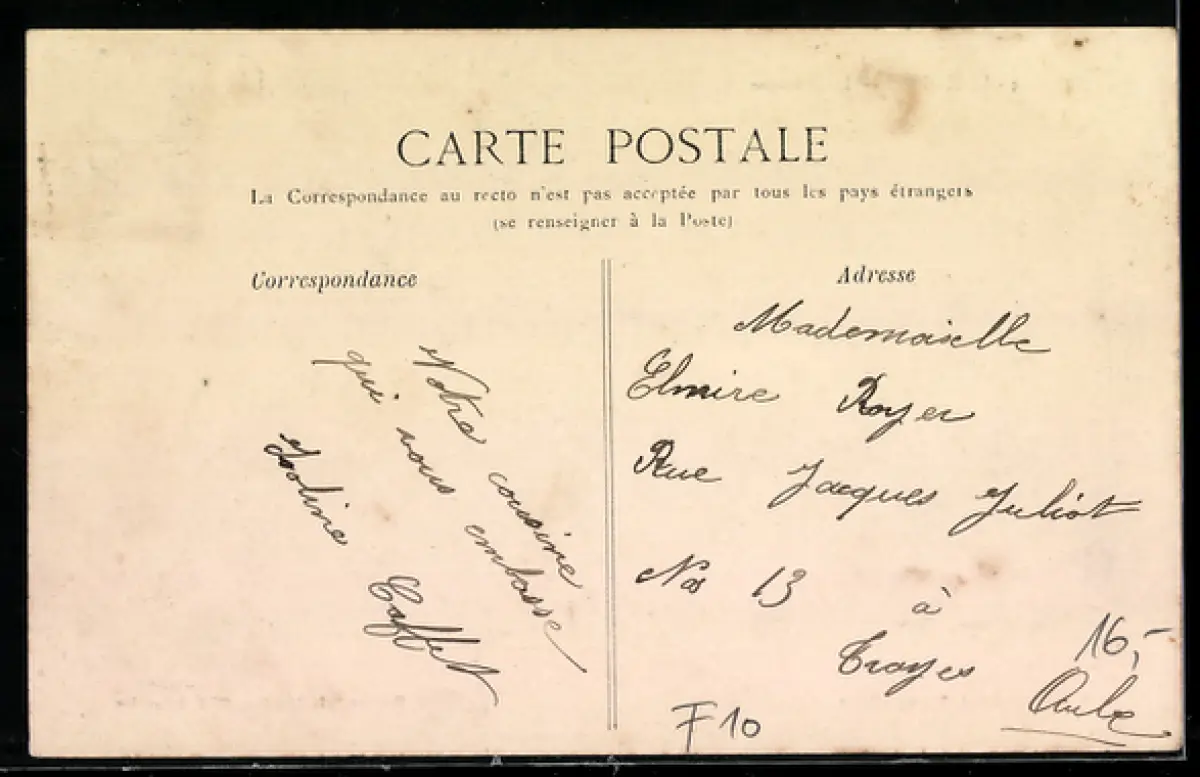 CARTE POSTALE
La Correspondance au recto n'est pas acceptée par tous les pays étrangers
(se renseigner à la Poste)
Correspondance
Votre cousine
qui vous embasse
Caffet
Adresse
Mademoiselle
Elmire Royer
Rue Jacques Juliot
No 13 à
Troyes
Aube
16,-
F 10